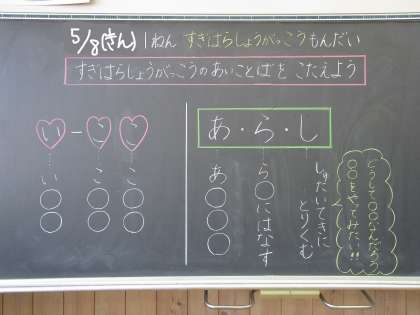 5/8(きん) 1ねん すぎはらしょうがっこうもんだい
すぎはらしょうがっこうのあいことばをこたえよう
い-ここ
い○○
こ○○
こ○○
あ・ら・し
あ○○○
ら○にはなす
しゅたいてきに
とりくむ
どうして○○なんだろう
○○をやってみたい!!